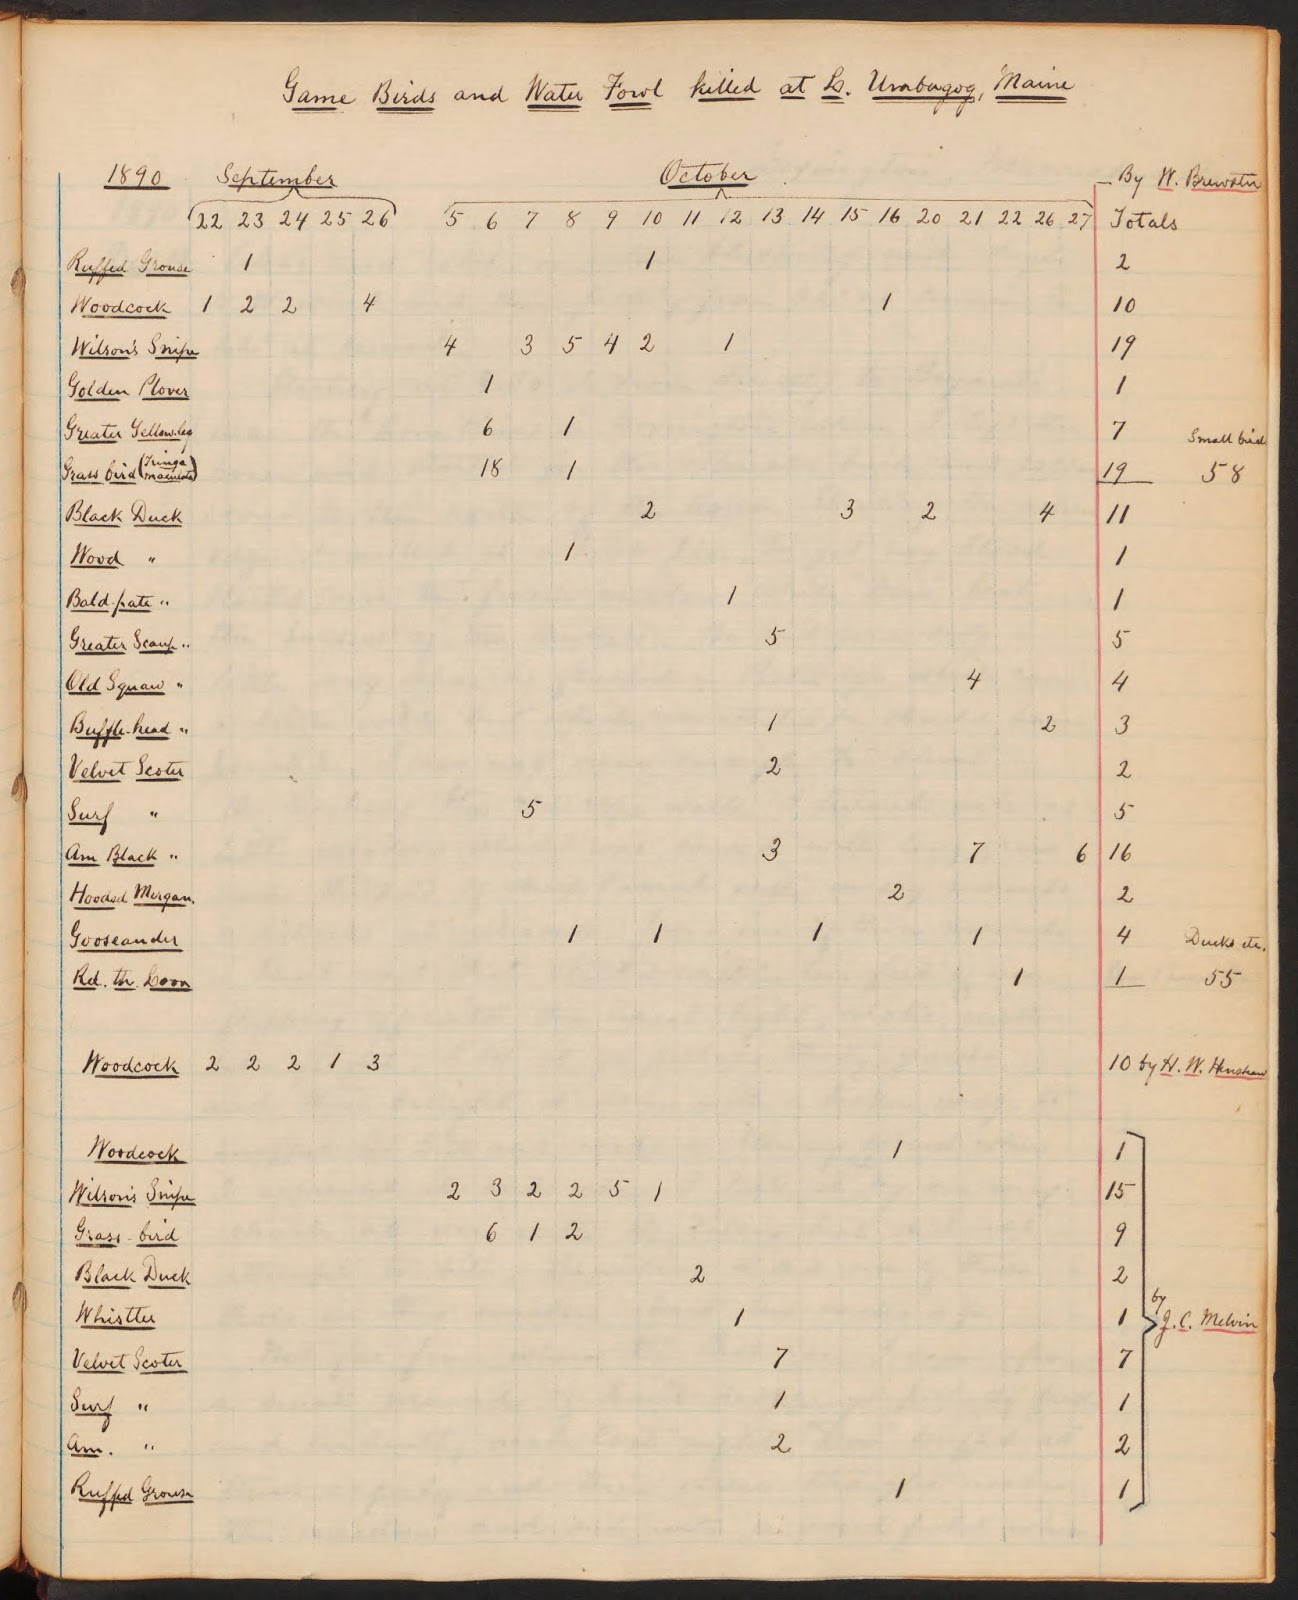 Game Birds and Water Fowl killed at L. Umbagog, Maine
1890 September October By W. Brewster
22 23 24 25 26 5 6 7 8 9 10 11 12 13 14 15 16 20 21 22 26 27 Totals
Ruffed Grouse 1 1 2
Woodcock 1 2 2 4 1 10
Wilson's Snipe 4 3 5 4 2 1 19
Golden Plover 1 1
Greater Yellow-leg 6 1 7 Small bird
Grass bird (Tringa maculata) 18 1 19 58
Black Duck 2 3 2 4 11
Wood " 1 1
Bald-pate " 1 1
Greater Scaup " 5 5
Old Squaw " 4 4
Buffle-head " 1 2 3
Velvet Scoter 2 2
Surf " 5 5
Am Black " 3 7 6 16
Hooded Mergan. 2 2
Gooseander 1 1 1 1 4 Ducks etc.
Rd. th. Loon 1 1 55
Woodcock 2 2 2 1 3 10 by H. W. Henshaw
Woodcock 1 1
Wilson's Snipe 2 3 2 2 5 1 15
Grass-bird 6 1 2 9
Black Duck 2 2
Whistler 1 1 by J. C. Melvin
Velvet Scoter 7 7
Surf " 1 1
Am. " 2 2
Ruffed Grouse 1 1